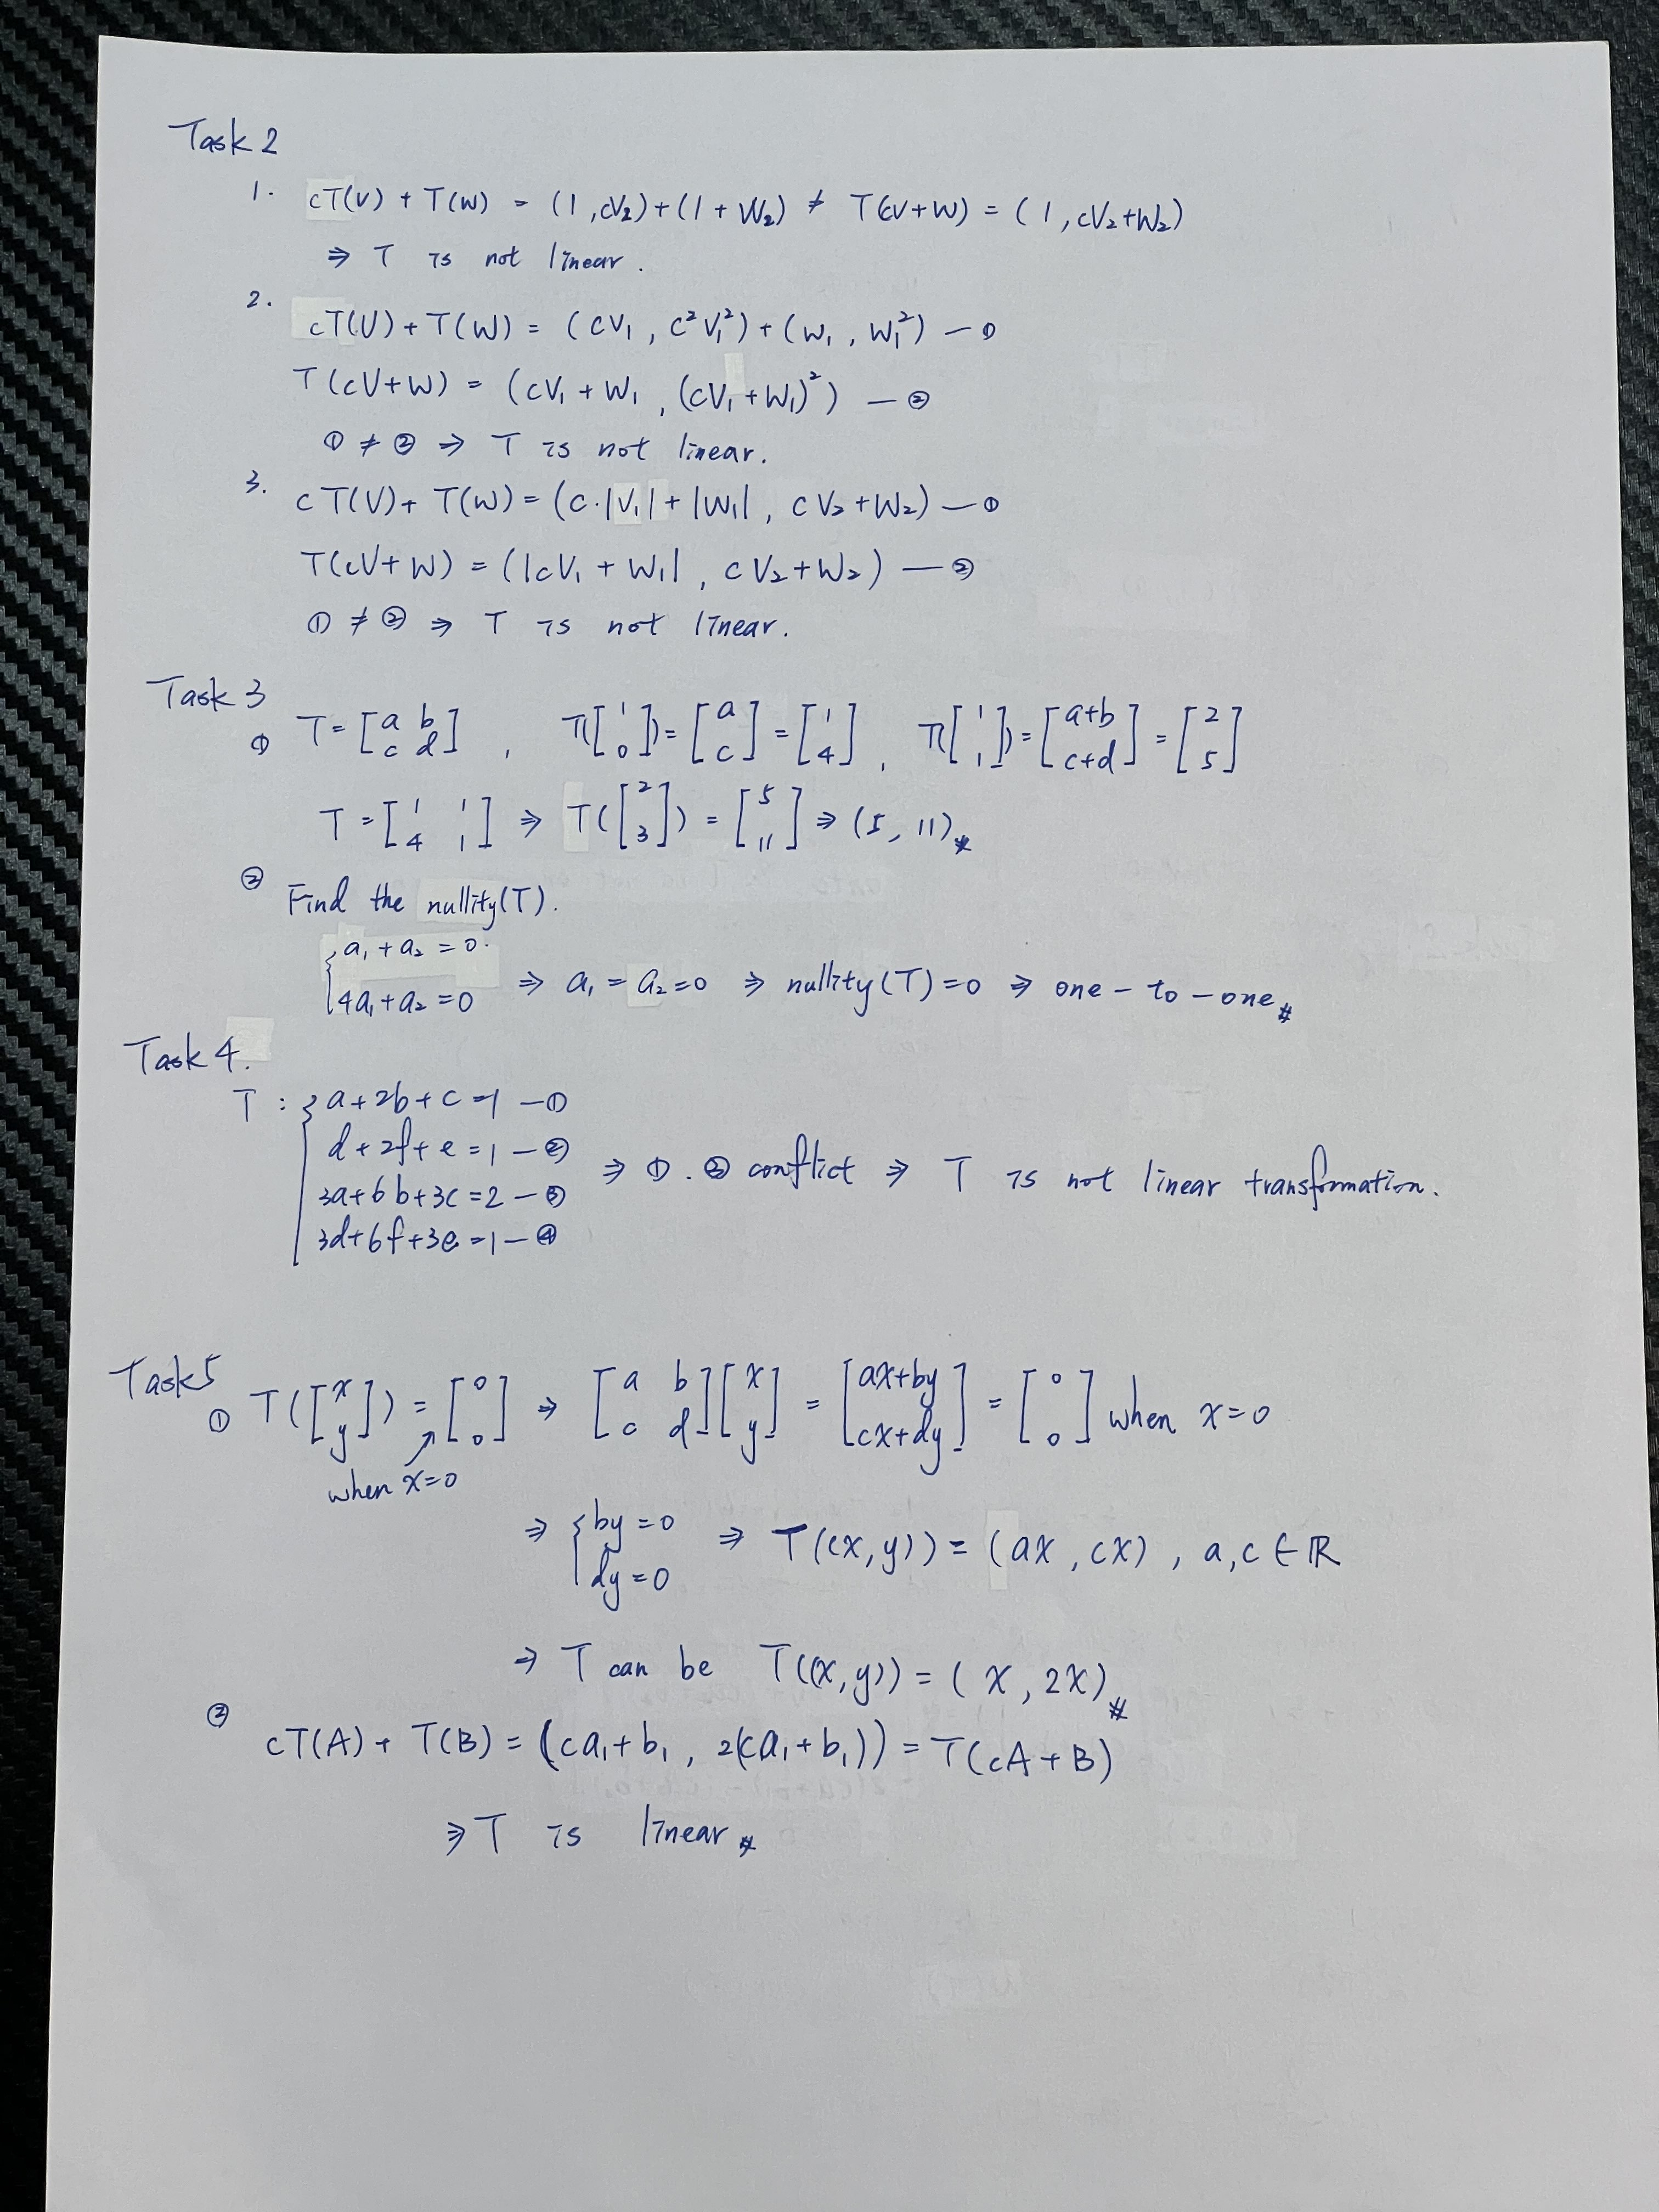 Task 2
1. cT(V) + T(W) = (1, cV₂) + (1 + W₂) ≠ T(cV+W) = (1, cV₂+W₂)
⇒ T is not linear.
2. cT(V) + T(W) = (cV₁, c²V₁²) + (W₁, W₁²) — ①
T(cV+W) = (cV₁ + W₁, (cV₁+W₁)²) — ②
① ≠ ② ⇒ T is not linear.
3. cT(V) + T(W) = (c·|V₁| + |W₁|, cV₂+W₂) — ①
T(cV+W) = (|cV₁ + W₁|, cV₂+W₂) — ②
① ≠ ② ⇒ T is not linear.
Task 3
① T = [a b; c d], T([1; 0]) = [a; c] = [1; 4], T([1; 1]) = [a+b; c+d] = [2; 5]
T = [1 1; 4 1] ⇒ T([2; 3]) = [5; 11] ⇒ (5, 11) #
② Find the nullity(T).
{a₁ + a₂ = 0.
4a₁ + a₂ = 0 ⇒ a₁ = a₂ = 0 ⇒ nullity(T) = 0 ⇒ one-to-one #
Task 4.
T : { a+2b+c = 1 — ①
d+2f+e = 1 — ②
3a+6b+3c = 2 — ③
3d+6f+3e = 1 — ④
⇒ ①. ③ conflict ⇒ T is not linear transformation.
Task 5
① T([x; y]) = [0; 0] ⇒ [a b; c d][x; y] = [ax+by; cx+dy] = [0; 0] when x=0
when x=0
⇒ {by = 0
dy = 0 ⇒ T((x,y)) = (ax, cx), a,c ∈ ℝ
⇒ T can be T((x,y)) = (x, 2x) #
② cT(A) + T(B) = (ca₁+b₁, 2(ca₁+b₁)) = T(cA+B)
⇒ T is linear #